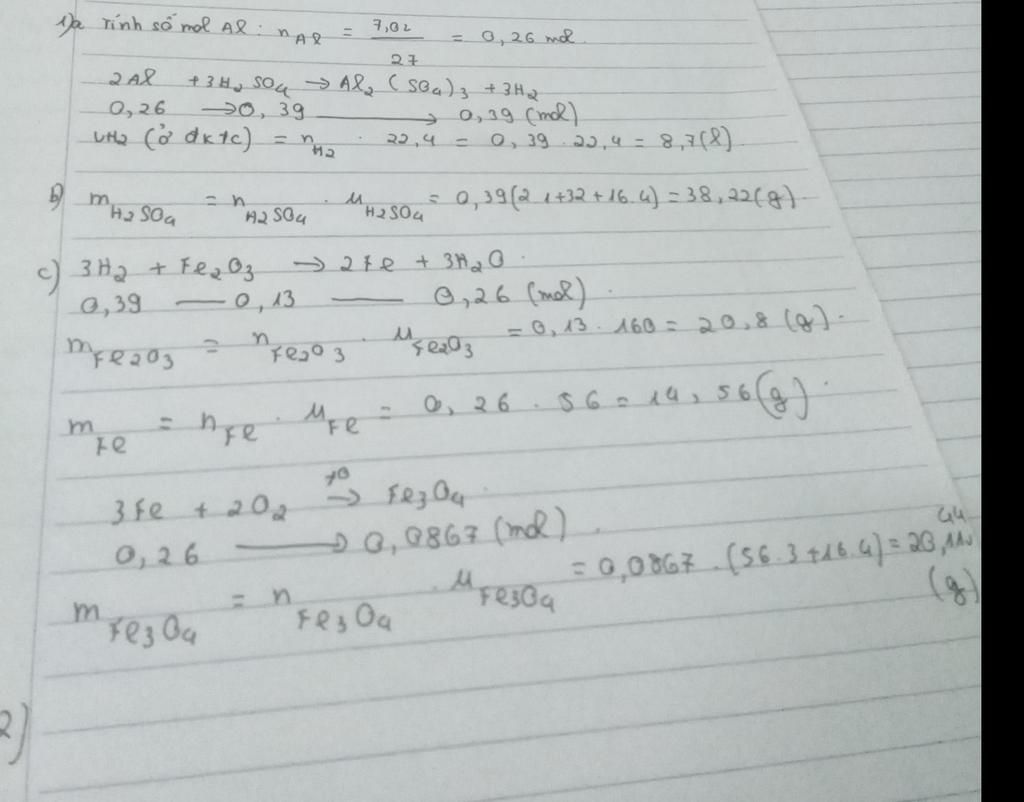 1)a Tính số mol Al : nAl = 7,02/27 = 0,26 mol.
2Al + 3H2SO4 → Al2(SO4)3 + 3H2
0,26 → 0,39 → 0,39 (mol)
VH2 (ở đktc) = nH2 . 22,4 = 0,39 . 22,4 = 8,7(l)
b) mH2SO4 = nH2SO4 . MH2SO4 = 0,39(2.1+32+16.4) = 38,22(g)
c) 3H2 + Fe2O3 → 2Fe + 3H2O.
0,39 — 0,13 — 0,26 (mol).
mFe2O3 = nFe2O3 . MFe2O3 = 0,13 . 160 = 20,8 (g).
mFe = nFe . MFe = 0,26 . 56 = 14,56(g).
3Fe + 2O2 →to Fe3O4.
0,26 → 0,0867 (mol).
mFe3O4 = nFe3O4 . MFe3O4 = 0,0867 . (56.3+16.4) = 20,11
(g)
2)